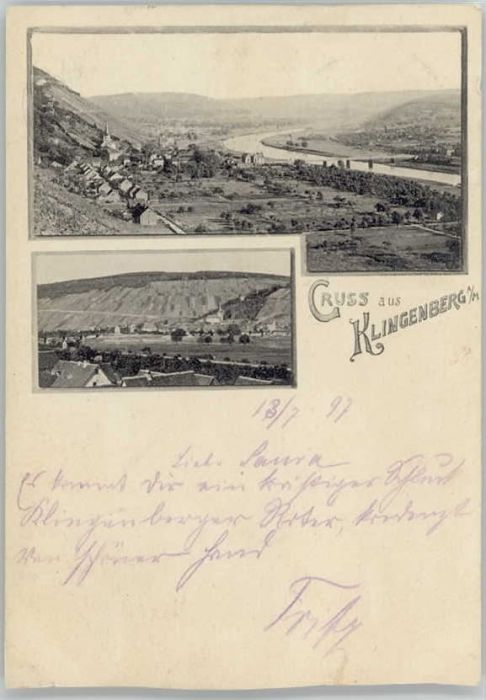 Gruss aus
Klingenberg a/M
13/7. 97
Liebe Laura
Es kommt dir ein kräftiger Schluck
Klingenberger Roter, kredenzt
von schöner Hand
Fritz